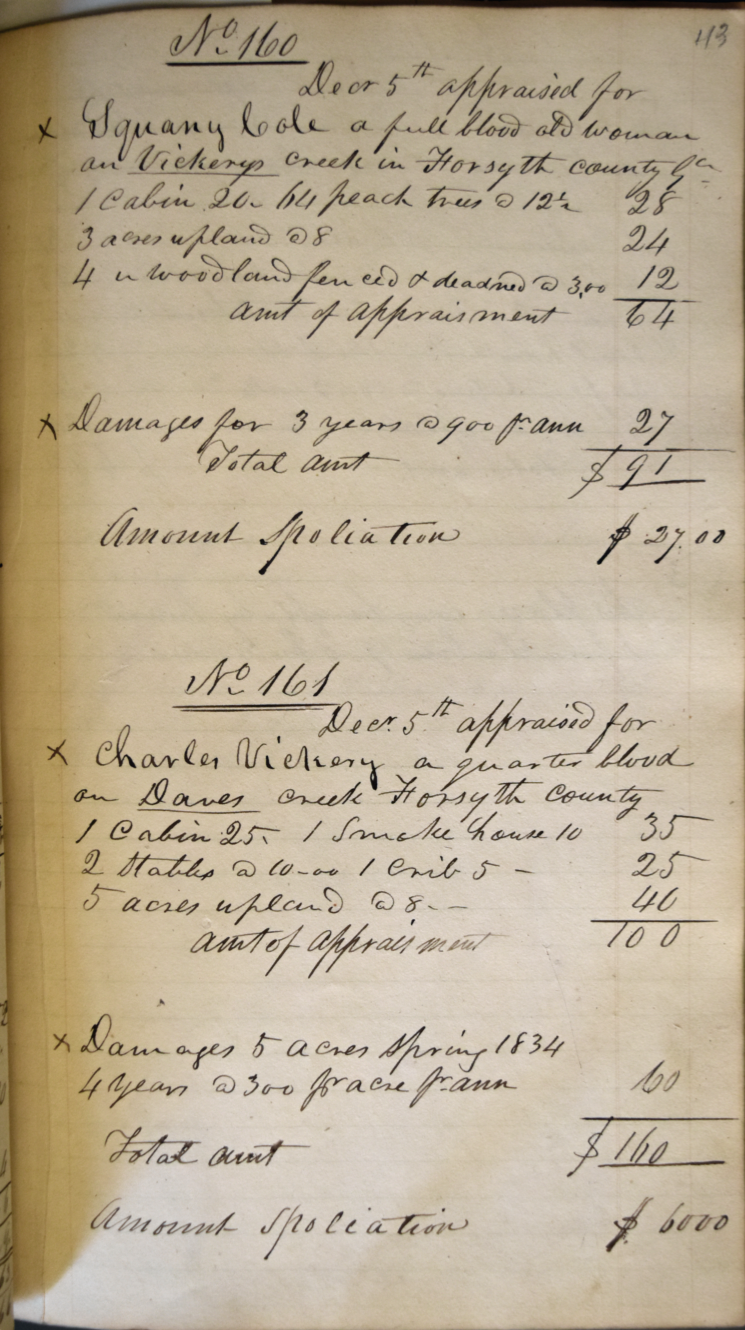 43
No 160
Decr 5th appraised for
x Squany Cole a full blood old woman
on Vickerys creek in Forsyth county Ga
1 Cabin 20- 64 peach trees @ 12½ 28
3 acres upland @ 8 24
4 " woodland fenced & deadned @ 3,00 12
amt of appraisment 64
x Damages for 3 years @ 900 pr ann 27
Total amt $ 91
Amount Spoliation $ 27.00
No 161
Decr. 5th appraised for
x Charles Vickery a quarter blood
on Daves creek Forsyth County
1 Cabin 25- 1 Smoke house 10 35
2 Stables @ 10-00 1 Crib 5 - 25
5 acres upland @ 8-- 40
amt of appraisment 100
x Damages 5 acres Spring 1834
4 years @ 300 pr acre pr ann 60
Total amt $ 160
Amount Spoliation $ 6000